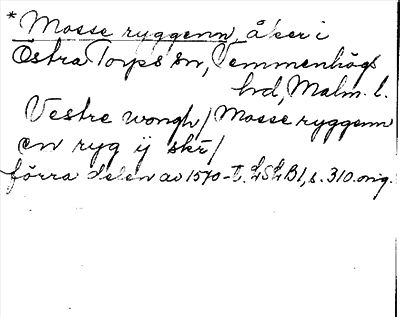 *Mosse ryggenn, åker i
Östra Torps sn, Vemmenhögs
hd, Malm. l.
Vestre wongh / Mosse ryggenn
en ryg ij skr /
förra delen av 1570-t. LSLB1, s. 310. orig.